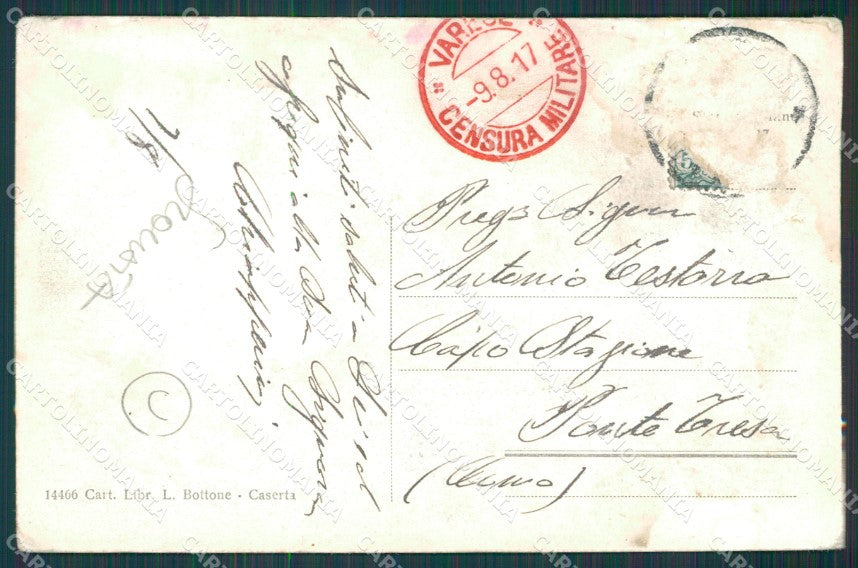 "VARESE"
-9.8.17
"CENSURA MILITARE"
Infiniti saluti a Lei ed
alla Sua Signora
1/8
Preg Signor
Antonio Testorio
Capo Stazione
Ponte Tresa
(Como)
14466 Cart. Libr. L. Bottone - Caserta
CARTOLINOMANIA